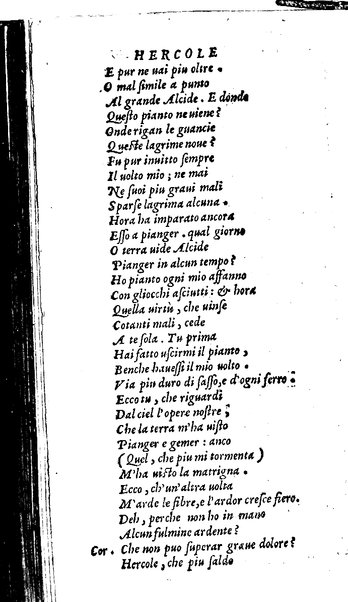 HERCOLE
E pur ne uai piu oltre.
O mal simile a punto
Al grande Alcide. E donde
Questo pianto ne uiene?
Onde rigan le guancie
Queste lagrime noue?
Fu pur inuitto sempre
Il uolto mio; ne mai
Ne suoi piu graui mali
Sparse lagrima alcuna.
Hora ha imparato ancora
Esso a pianger. qual giorno
O terra uide Alcide
Pianger in alcun tempo?
Ho pianto ogni mio affanno
Con gliocchi asciutti: & hora
Quella uirtù, che uinse
Cotanti mali, cede
A te sola. Tu prima
Hai fatto uscirmi il pianto,
Benche hauessi il mio uolto.
Via piu duro di sasso, e d'ogni ferro:
Ecco tu, che riguardi
Dal ciel l'opere nostre;
Che la terra m'ha uisto
Pianger e gemer: anco
(Quel, che piu mi tormenta)
M'ha uisto la matrigna.
Ecco, ch'un'altra uolta
M'arde le fibre, e l'ardor cresce fiero.
Deh, perche non ho in mano
Alcun fulmine ardente?
Cor. Che non puo superar graue dolore?
Hercole, che piu saldo